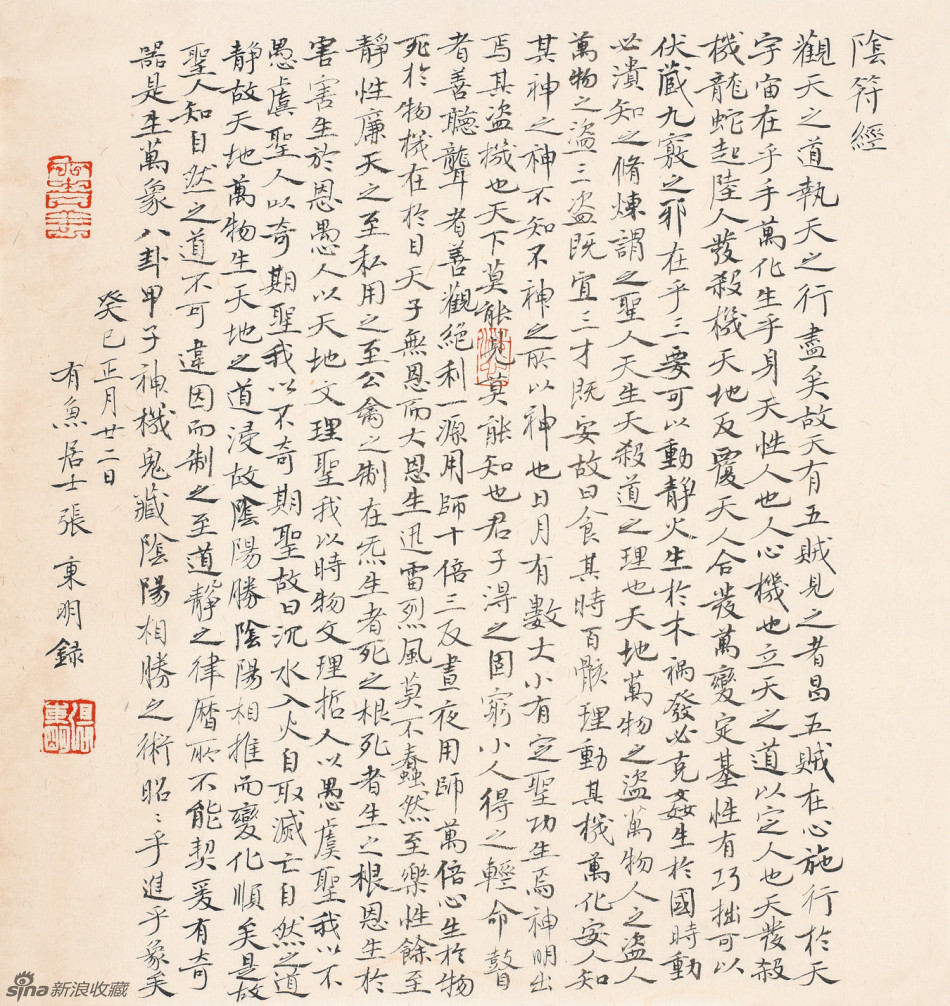 陰符經
觀天之道執天之行盡矣故天有五賊見之者昌五賊在心施行於天
宇宙在乎手萬化生乎身天性人也人心機也立天之道以定人也天發殺
機龍蛇起陸人發殺機天地反覆天人合發萬變定基性有巧拙可以
伏藏九竅之邪在乎三要可以動靜火生於木禍發必克姦生於國時動
必潰知之脩煉謂之聖人天生天殺道之理也天地萬物之盜萬物人之盜人
萬物之盜三盜既宜三才既安故曰食其時百骸理動其機萬化安人知
其神之神不知不神之所以神也日月有數大小有定聖功生焉神明出
焉其盜機也天下莫能見莫能知也君子得之固窮小人得之輕命瞽
者善聽聾者善觀絕利一源用師十倍三反晝夜用師萬倍心生於物
死於物機在於目天子無恩而大恩生迅雷烈風莫不蠢然至樂性餘至
靜性廉天之至私用之至公禽之制在炁生者死之根死者生之根恩生於
害害生於恩愚人以天地文理聖我以時物文理哲人以愚虞聖我以不
愚虞聖人以奇期聖我以不奇期聖故曰沉水入火自取滅亡自然之道
靜故天地萬物生天地之道浸故陰陽勝陰陽相推而變化順矣是故
聖人知自然之道不可違因而制之至道靜之律曆所不能契爰有奇
器是生萬象八卦甲子神機鬼藏陰陽相勝之術昭〻乎進乎象矣
癸巳正月廿二日
有魚居士張東明錄
sina新浪收藏